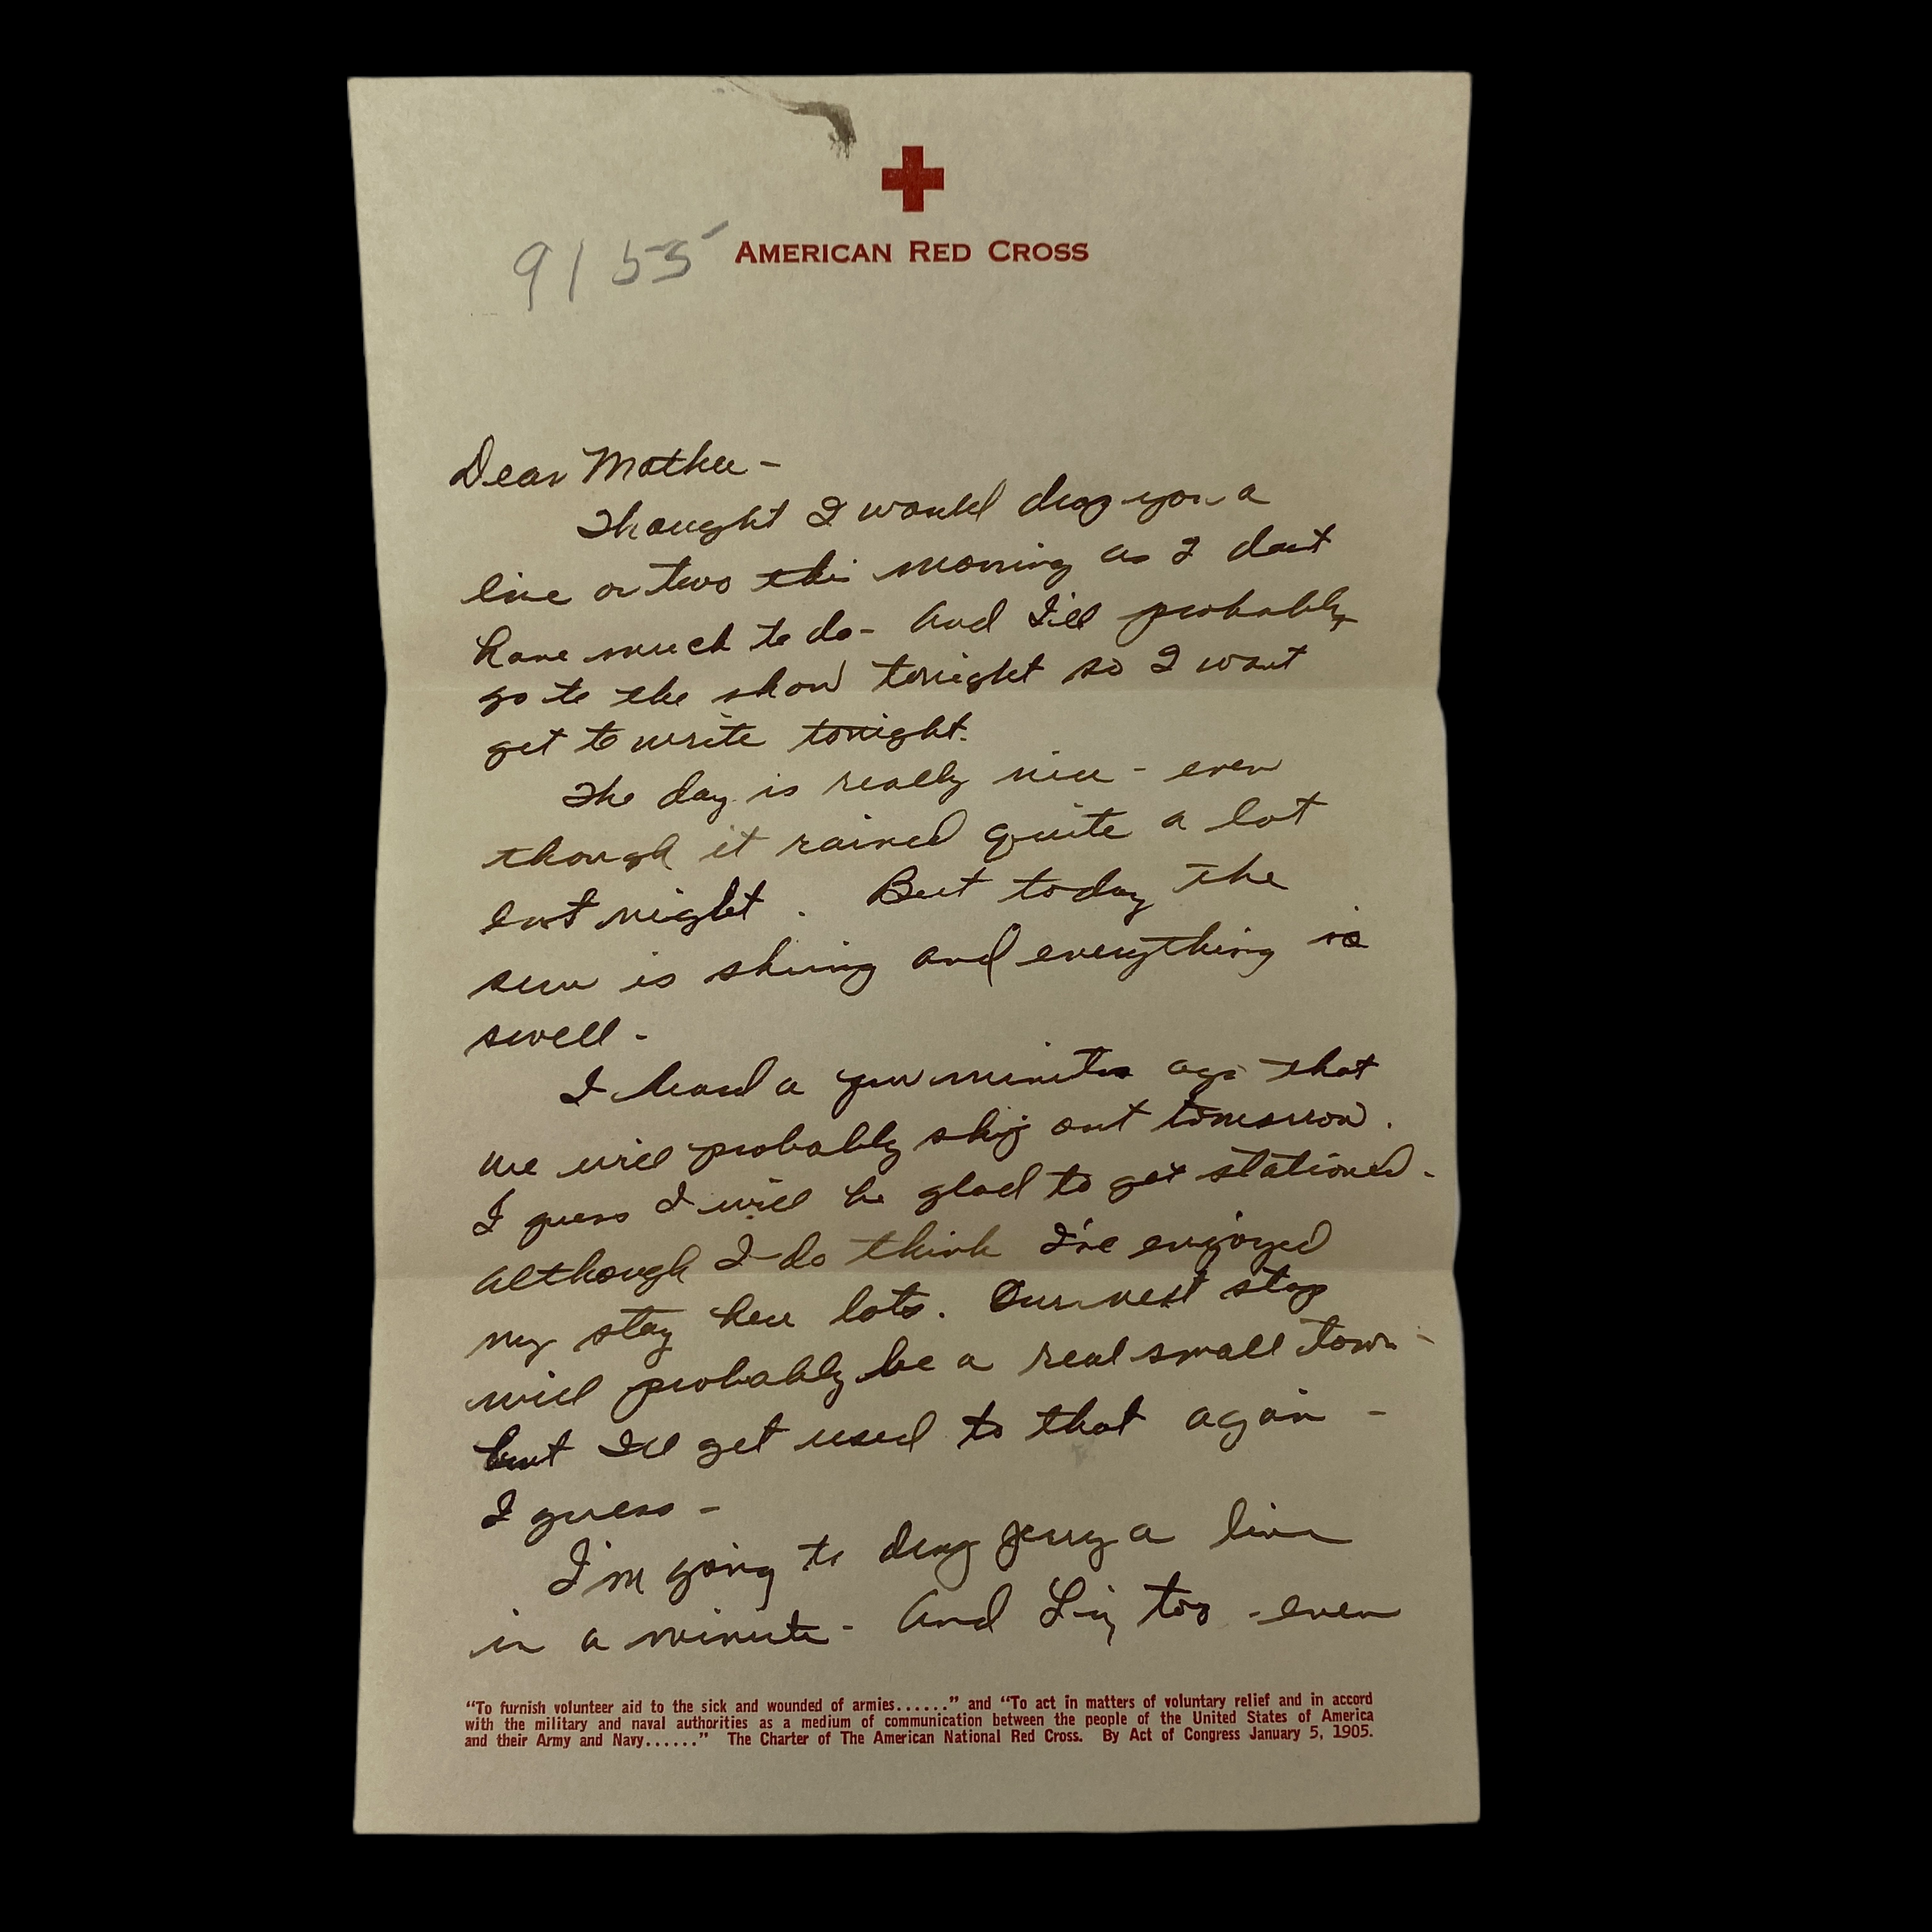 9155
AMERICAN RED CROSS
Dear Mother -
Thought I would drop you a
line or two this morning as I dont
have much to do - And I'll probably
go to the show tonight so I wont
get to write tonight.
The day is really nice - even
though it rained quite a lot
last night. But today the
sun is shining and everything is
swell -
I heard a few minutes ago that
we will probably ship out tomorrow.
I guess I will be glad to get stationed -
Although I do think I've enjoyed
my stay here lots. Our next stop
will probably be a real small town -
but I'll get used to that again -
I guess -
I'm going to drop Jerry a line
in a minute - And Liz too - even
“To furnish volunteer aid to the sick and wounded of armies......” and “To act in matters of voluntary relief and in accord
with the military and naval authorities as a medium of communication between the people of the United States of America
and their Army and Navy......” The Charter of The American National Red Cross. By Act of Congress January 5, 1905.